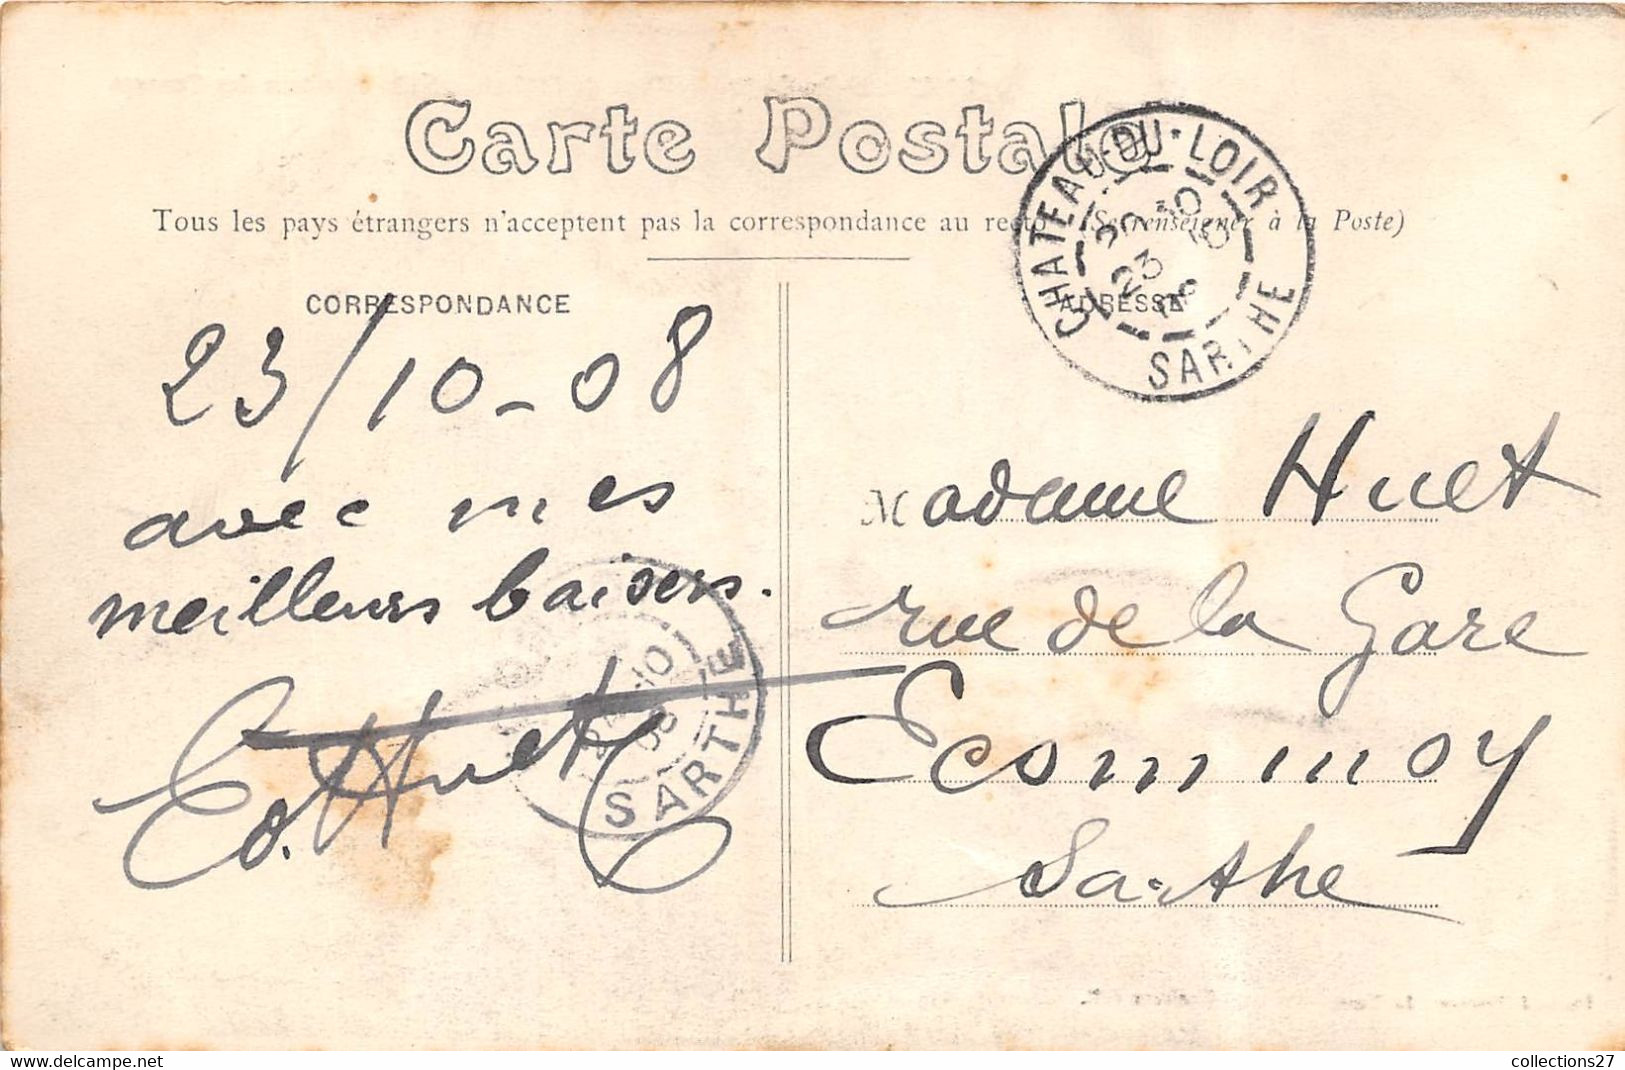 Carte Postale
Tous les pays étrangers n'acceptent pas la correspondance au recto (Se renseigner à la Poste)
CORRESPONDANCE
ADRESSE
CHATEAU-DU-LOIR
23 10
08
SARTHE
23/10-08
avec mes
meilleurs baisers.
Ed. Huet
10
08
SARTHE
Madame Huet
rue de la Gare
Ecommoy
Sarthe
collections27